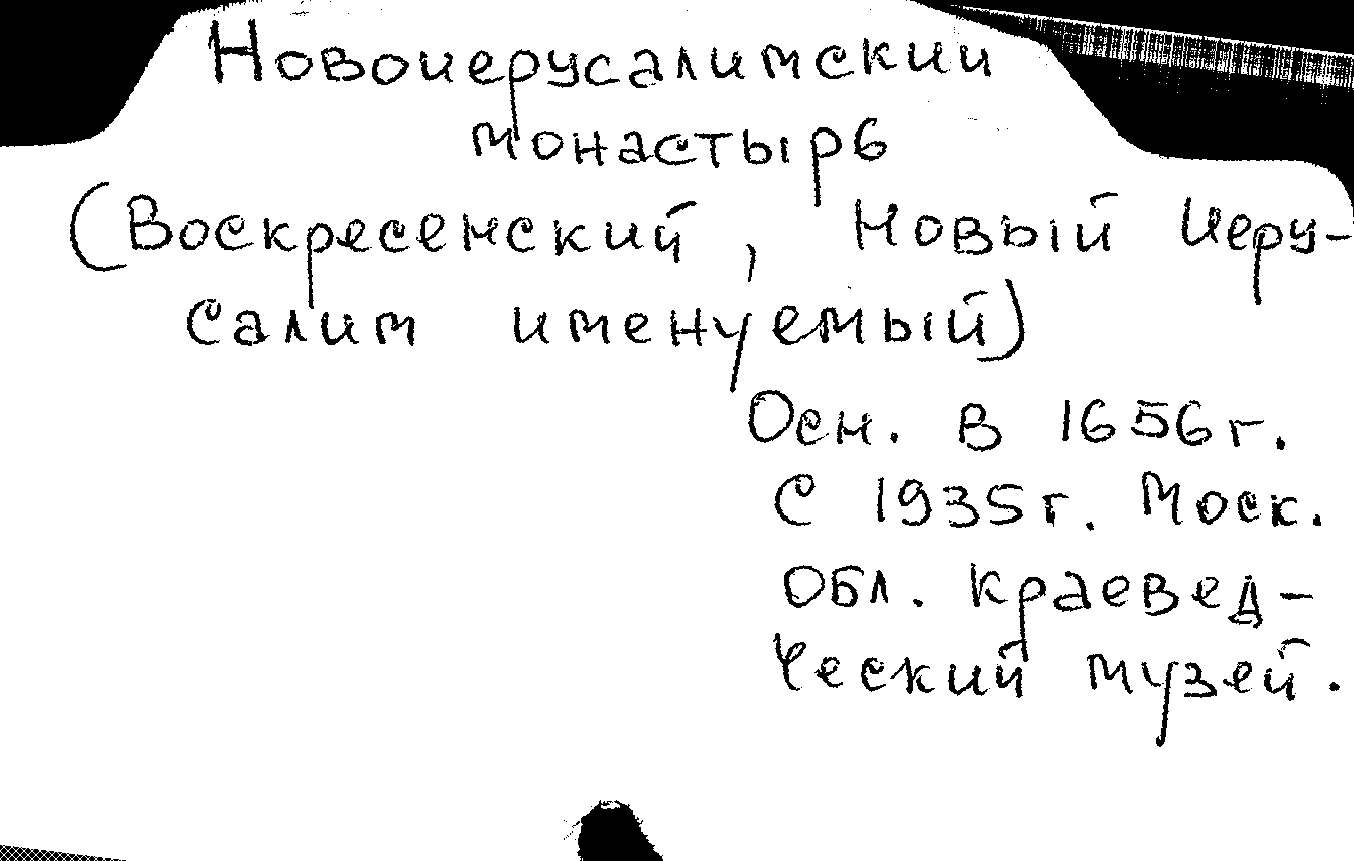 Новоиерусалимский
монастырь
(Воскресенский, Новый Иеру-
салим именуемый)
Осн. в 1656г.
С 1935г. Моск.
обл. краевед-
ческий музей.